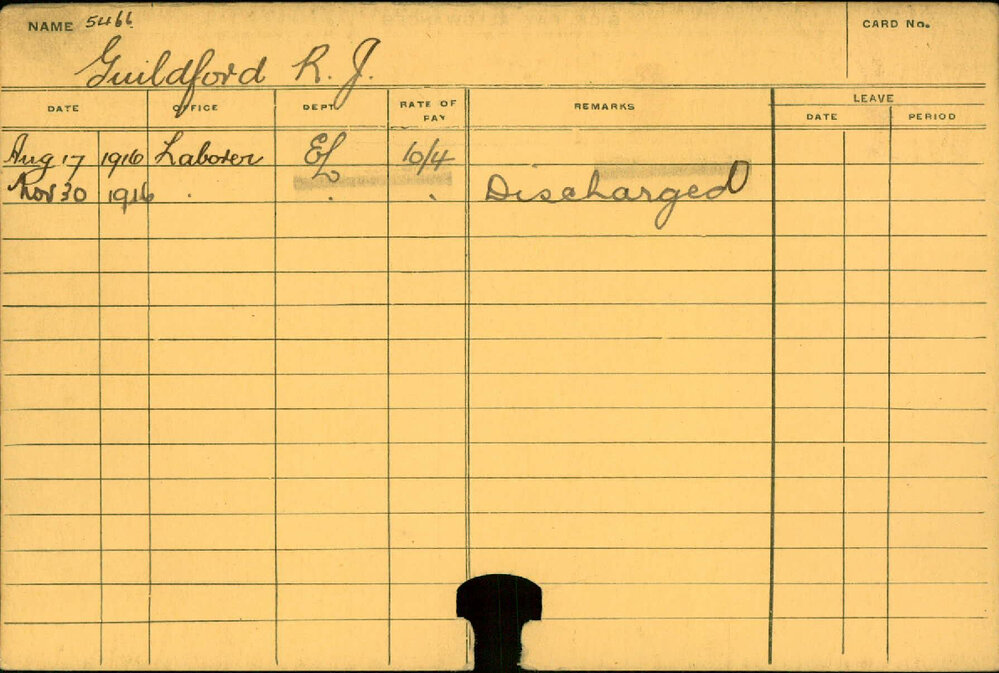 NAME 5466 CARD No.
Guildford R. J.
DATE OFFICE DEPT. RATE OF PAY REMARKS LEAVE
DATE PERIOD
Aug 17 1916 Laborer EL 10/4
Nov 30 1916 . . . Discharged